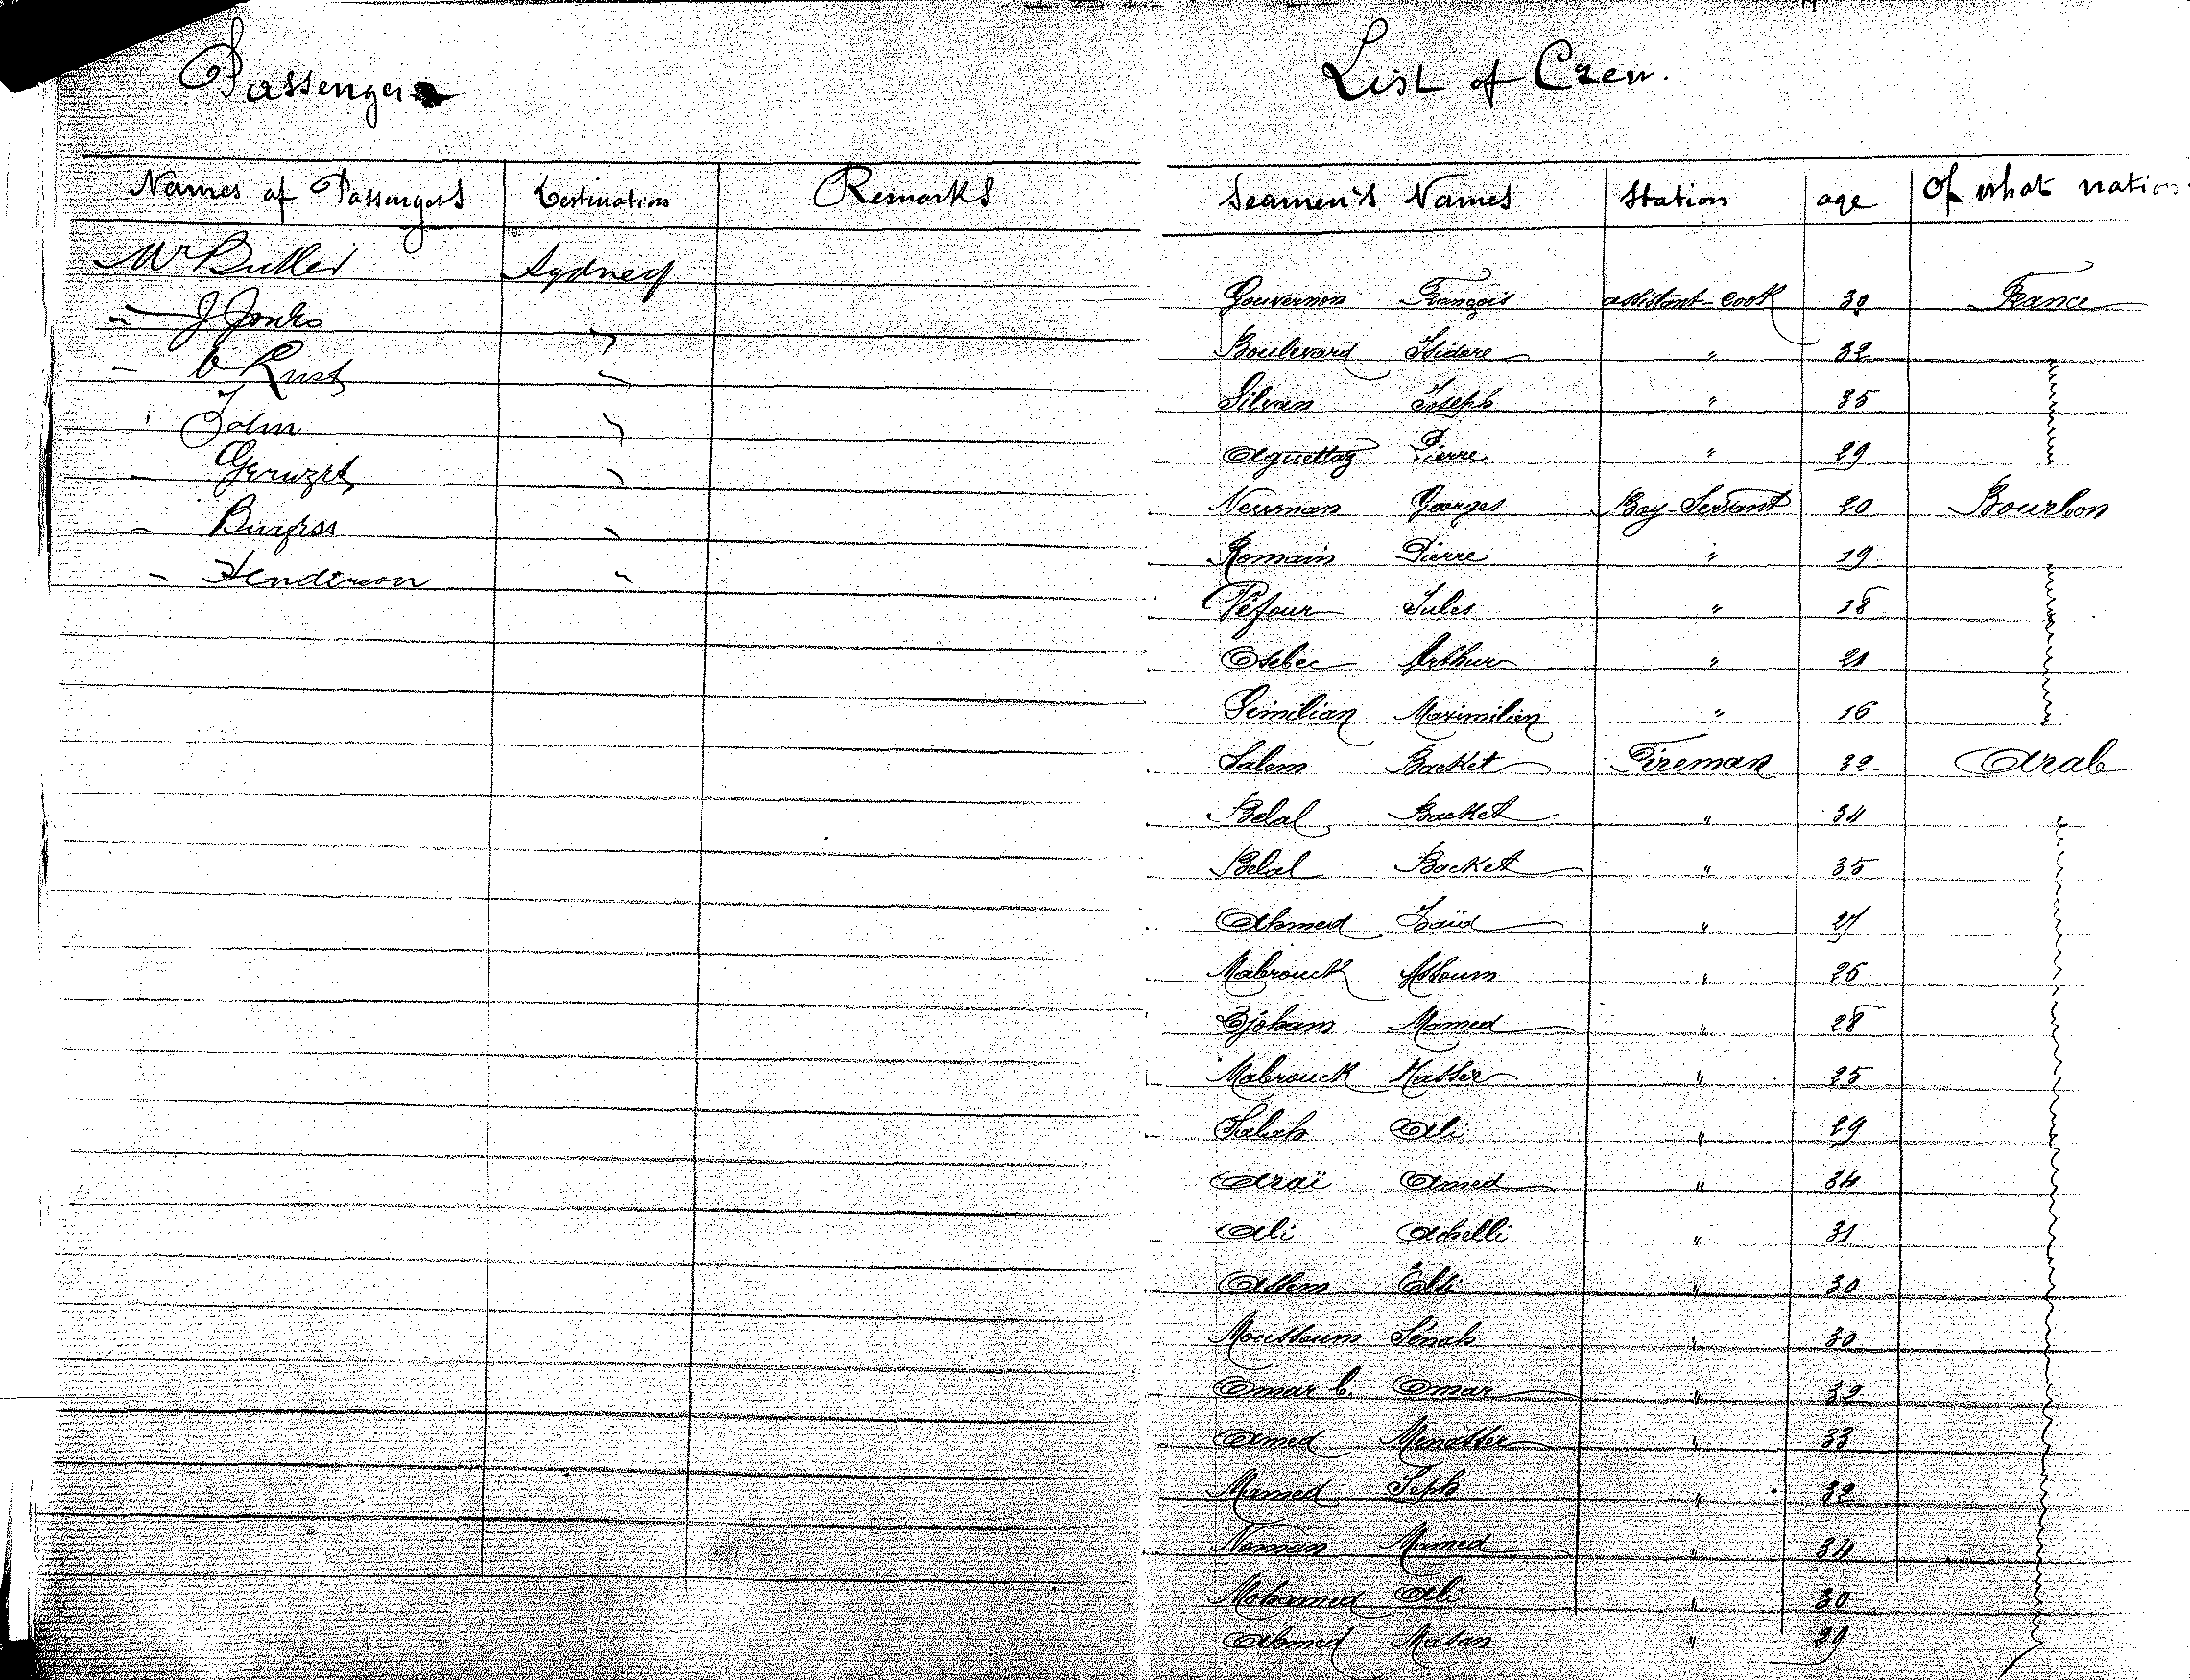 Passengers
Names of Passengers Destination Remarks
Mr Butler Sydney
" J Jones "
" Rust "
" John "
" "
" Burgess "
" Henderson "
List of Crew.
Seamen's Names Station age Of what nation
Gouvernon François assistant-cook 39 France
Boulevard Isidore " 32
Silvan Joseph " 35
Aguettaz Pierre " 29
Newman Georges Boy-Servant 20 Bourbon
Romain Pierre " 19
Péfour Jules " 18
Arthur " 21
Similian Maximilien " 16
Salem Backet Fireman 32 Arab
Belal Backet " 34
Belal Backet " 35
Ahmed Zaïd " 27
Mabrouck Assoum " 25
Mamed " 28
Mabrouck Nasser " 25
Salah Ali " 29
Araï Amed " 34
Ali Achelli " 31
Assem " 30
Moussoum Senah " 30
Omar Omar " 32
Amed Menasser " 33
Mamed " 32
Noman Mamed " 34
Mohamed Ali " 30
Ahmed Matan " 29